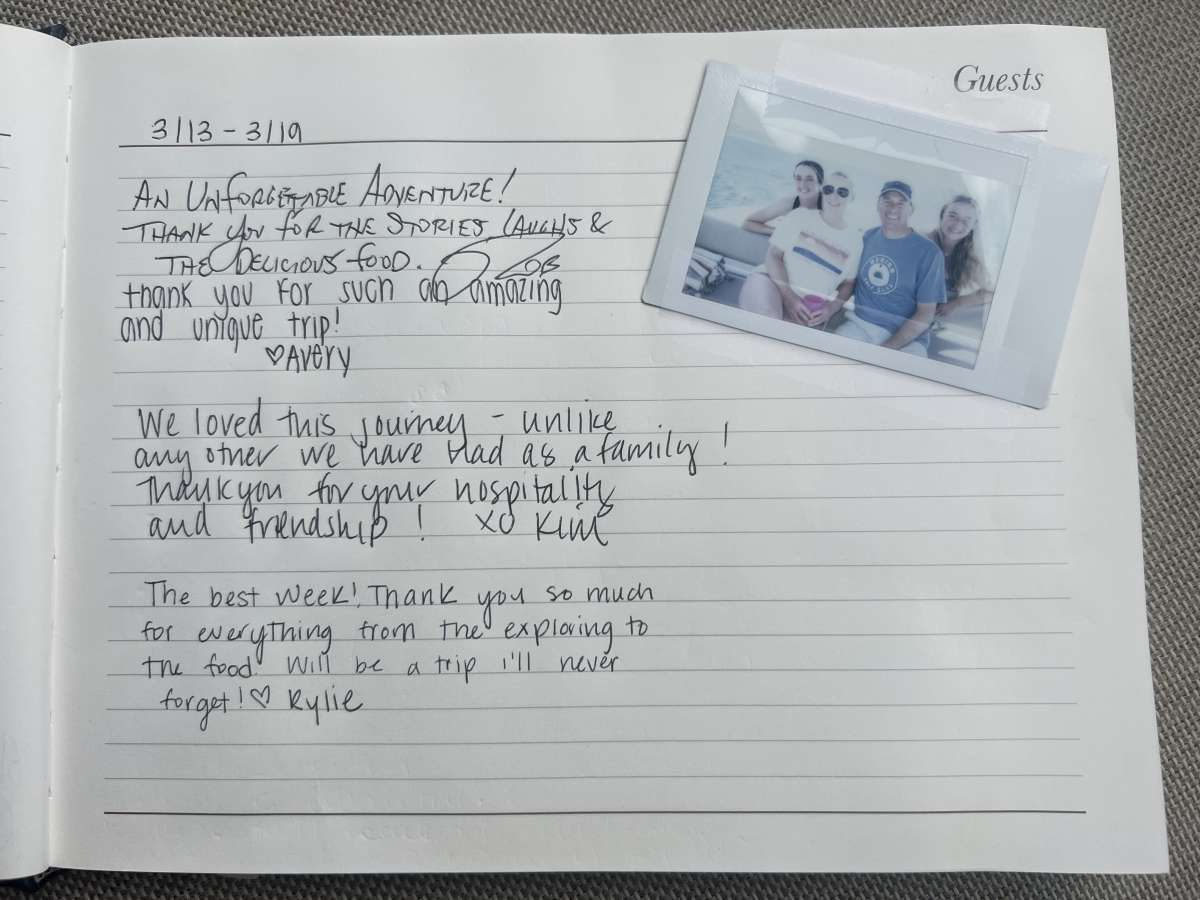 Guests
3/13 - 3/19
AN UNFORGETTABLE ADVENTURE!
THANK YOU FOR THE STORIES LAUGHS &
THE DELICIOUS FOOD. ROB
thank you for such an amazing
and unique trip!
♡Avery
We loved this journey - unlike
any other we have had as a family!
Thank you for your hospitality
and friendship! XO Kim
The best week! Thank you so much
for everything from the exploring to
the food! Will be a trip i'll never
forget! ♡ Rylie